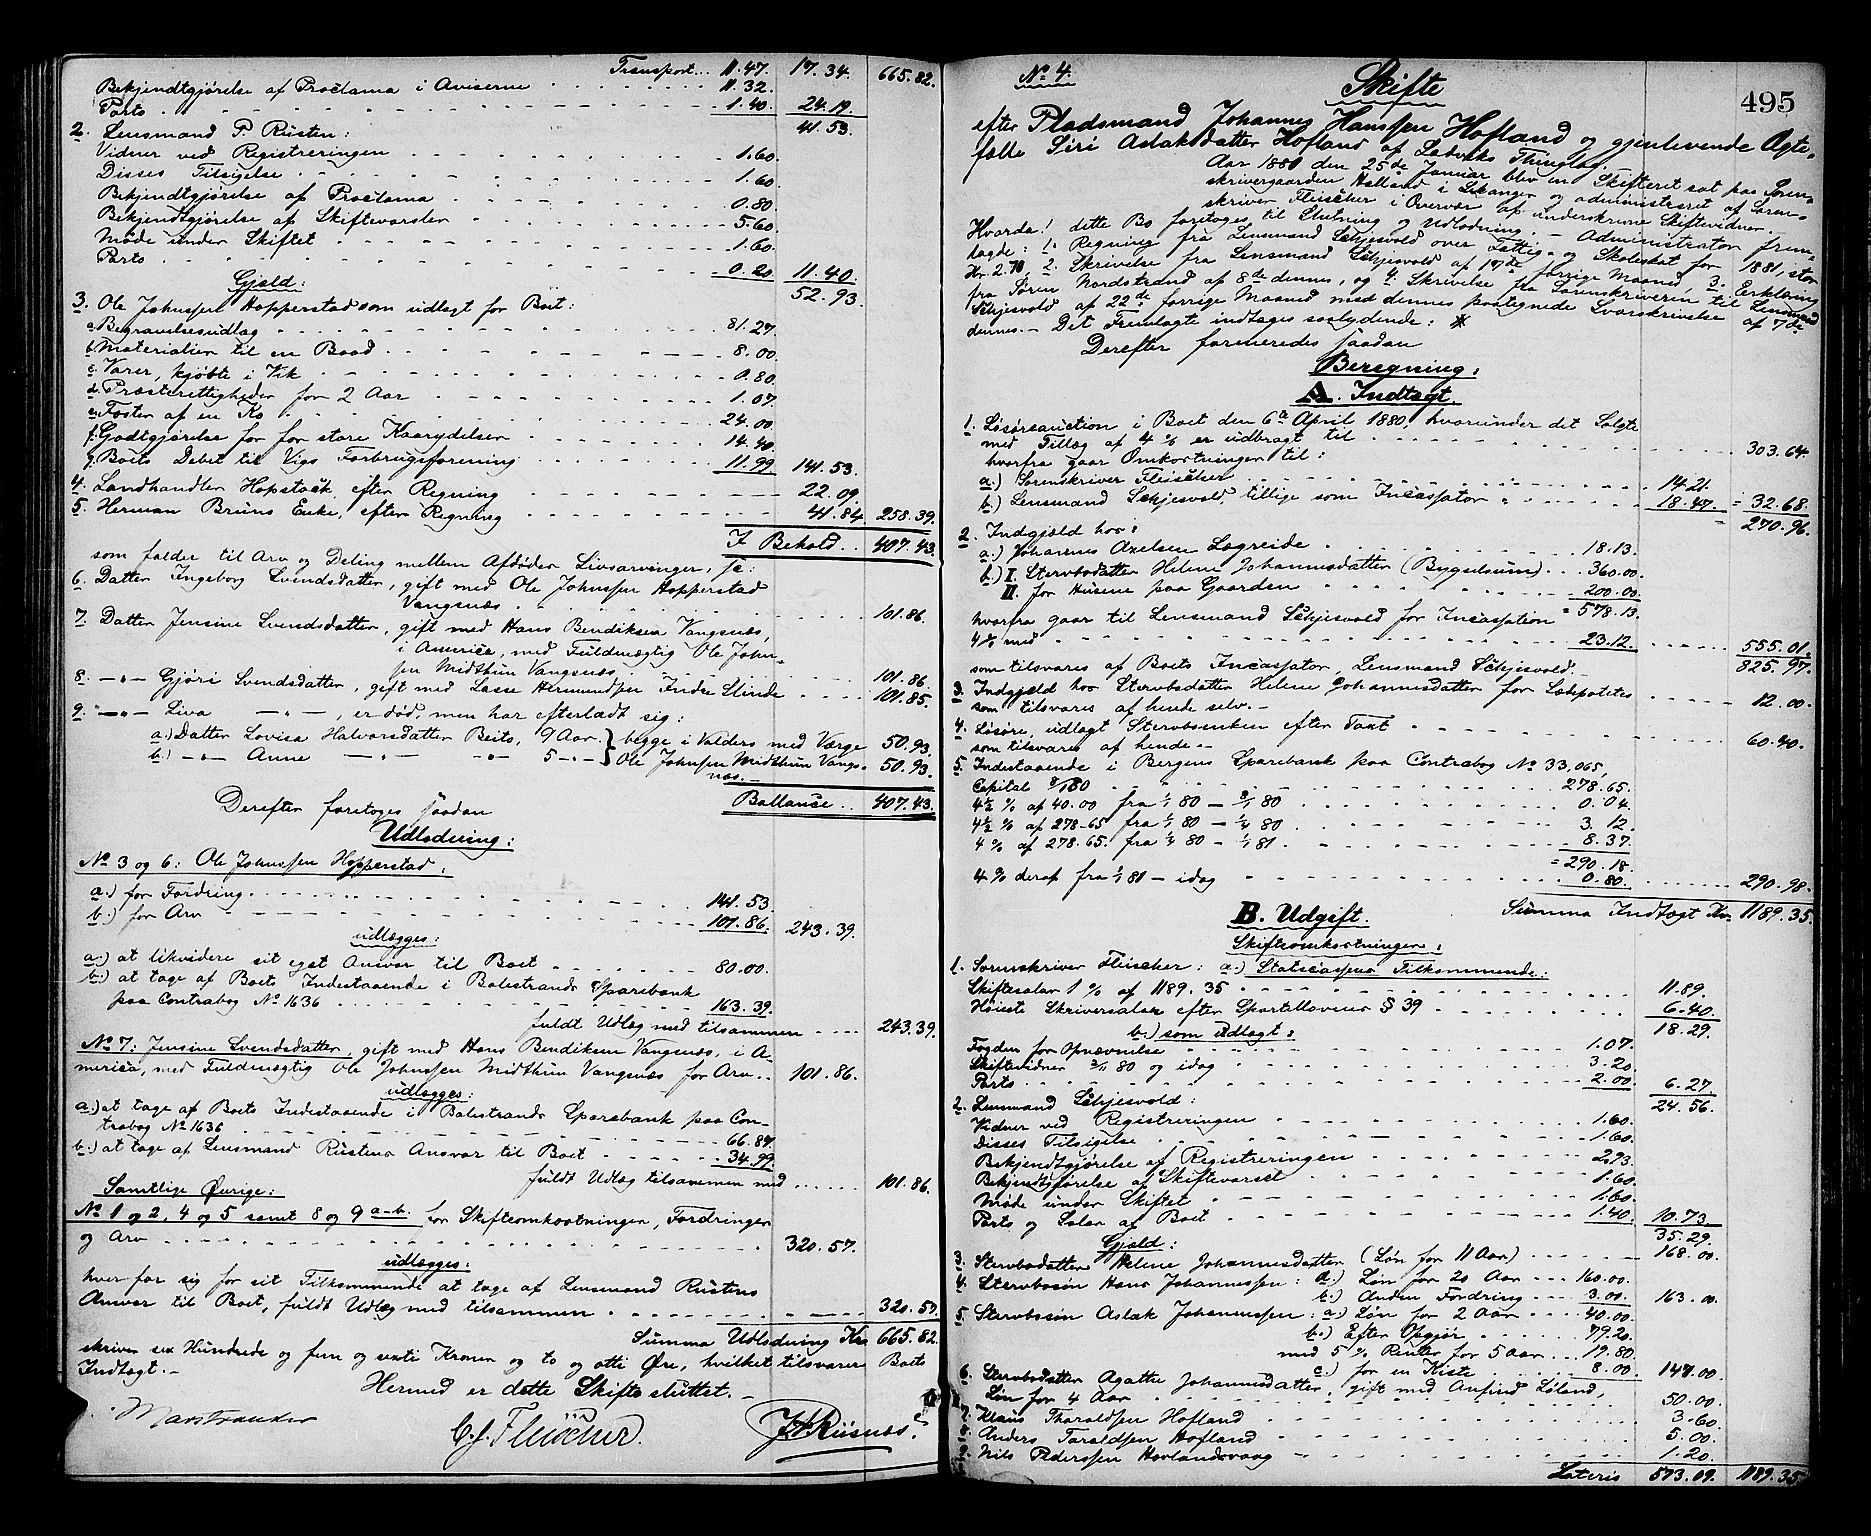 Transport... 11.47. 17.34. 665.82.
Bekjendtgjørelse af Proclama i Aviserne 11.32.
Porto 1.40. 24.19.
2. Lensmand P. Rusten: 41.53.
Vidner ved Registreringen 1.60.
Disses Tilsigelse 1.60.
Bekjendtgjørelse af Proclama 0.80.
Bekjendtgjørelse af Skiftevarsler 5.60.
Møde under Skiftet 1.60.
Porto 0.20. 11.40.
Gjæld: 52.93.
3. Ole Johnssen Hopperstad som udlagt for Boet:
a. Begravelsesudlæg 81.27.
b. Materialier til en Baad 8.00.
c. Varer, kjøbte i Vik 0.80.
d. Præsterettigheder for 2 Aar 1.07.
e. Foster af en Ko 24.00.
f. Godtgjørelse for for store Kaarydelser 14.40.
g. Boets Debet til Vigs Forbrugsforening 11.99 141.53.
4. Landhandler Hopstock, efter Regning 22.09.
5. Herman Bruns Enke, efter Regning 41.84 258.39.
I Behold.. 407.43.
som falder til Arv og Deling mellem Afdødes Livsarvinger, ſc:
6. Datter Ingeborg Svendsdatter, gift med Ole Johnssen Hopperstad
Vangsnæs 101.86.
7. Datter Jensine Svendsdatter, gift med Hans Bendiksen Vangsnæs,
i America, med Fuldmægtig Ole John-
sen Midthun Vangsnæs 101.86.
8. —〃— Gjøri Svendsdatter, gift med Lasse Hermundsen Indre Slinde 101.85.
9. —〃— Liva —〃—, er død, men har efterladt sig:
a.) Datter Lovisa Halvorsdatter Beito, 9 Aar. } begge i Valders med Værge 50.93.
b.) —〃— Anne —〃— —〃— 5 —〃— } Ole Johnssen Midthun Vangs- 50.93.
næs.—
Ballance.. 407.43.
Derefter foretoges saadan
Udlodning:
No 3 og 6: Ole Johnssen Hopperstad:
a.) for Fordring 141.53
b.) for Arv 101.86. 243.39.
udlægges:
a.) at likvidere sit eget Ansvar til Boet 80.00.
b.) at tage af Boets Indestaaende i Balestrands Sparebank
paa Contrabog No 1636 163.39.
fuldt Udlæg med tilsammen 243.39.
No 7: Jensine Svendsdatter, gift med Hans Bendiksen Vangsnæs, i A-
merica, med Fuldmægtig Ole Johnssen Midthun Vangsnæs for Arv.. 101.86.
udlægges:
a.) at tage af Boets Indestaaende i Balestrands Sparebank paa Con-
trabog No 1636 66.87.
b.) at tage af Lensmand Rustens Ansvar til Boet 34.99.
fuldt Udlæg tilsammen med 101.86.
Samtlige Øvrige:
No 1 og 2, 4 og 5 samt 8 og 9 a-b. for Skifteomkostninger, Fordringer
og Arv 320.57.
udlægges:
hver for sig for sit Tilkommende at tage af Lensmand Rustens
Ansvar til Boet, fuldt Udlæg med tilsammen 320.57.
Summa Udlodning Kr. 665.82.
skriver sex Hundrede og fem og sexti Kroner og to og otti Øre, hvilket tilsvarer Boets
Indtægt.—
Hermed er dette Skifte sluttet.—
C. J. Fleischer.
No 4.
Skifte
495
efter Pladsmand Johannes Hanssen Hofland og gjenlevende Ægte-
fælle Siri Aslaksdatter Hofland af Ladviks Thinglag.
Aar 1881 den 25de Januar blev en Skifteret sat paa Soren-
skrivergaarden Husland i Lekanger og administreret af Soren-
skriver Fleischer i Overvær af underskrevne Skiftevidner.
Hvorda! dette Bo foretoges til Slutning og Udlodning.— Administrator frem-
lagde: 1. Regning fra Lensmand Schjesvold over Fattig- og Skoleskat for 1881, stor
Kr. 2.70, 2. Skrivelse fra Lensmand Schjesvold af 17de forrige Maaned, 3. Erklæring
fra Søren Nordstrand af 8de dennes, og 4. Skrivelse fra Sorenskriveren til Lensmand
Schjesvold af 22de forrige Maaned med dennes paategnede Svarskrivelse af 7de
dennes.— Det Fremlagte indtages saalydende: ※
Derefter formeredes saadan
Beregning:
A. Indtægt.
1. Løsøreauction i Boet den 6te April 1880, hvorunder det Solgte
med Tillæg af 4 % er udbragt til 303.64.
hvorfra gaar Omkostninger til:
a.) Sorenskriver Fleischer 14.21.
b.) Lensmand Schjesvold, tillige som Incassator 18.47. = 32.68.
= 270.96.
2. Indgjæld hos:
a.) Johannes Axelsen Lægreide 18.13.
b.) I. Stervbsdatter Helene Johannesdatter (Bygselsum) 360.00.
II. for Husene paa Gaarden 200.00.
= 578.13.
hvorfra gaar til Lensmand Schjesvold for Incassation
4 % med 23.12. 555.01.
som tilsvares af Boets Incassator, Lensmand Schjesvold. 825.97.
3. Indgjæld hos Stervbsdatter Helene Johannesdatter for Sædepotetes 12.00.
som tilsvares af hende selv.—
4. Løsøre, udlagt Stervbsenken efter Taxt 60.40.
som tilsvares af hende.—
5. Indestaaende i Bergens Sparebank paa Contrabog No 33,065,
Capital 8/1 80 278.65.
4½ % af 40.00 fra 1/1 80 — 8/1 80 0.04.
4½ % af 278.65 fra 1/1 80 — 1/4 80 3.12.
4 % af 278.65. fra 1/4 80 — 1/1 81 8.37.
= 290.18.
4 % deraf fra 1/1 81 — idag 0.80. 290.98.
Summa Indtægt Kr. 1189.35.
B. Udgift.
Skifteomkostninger:
1. Sorenskriver Fleischer: a.) Statscassens Tilkommende:
Skiftesalær 1 % af 1189.35 11.89.
Høieste Skriversalær efter Sportellovens § 39 6.40.
b.) som udlagt: 18.29.
Fogden for Opnævnelse 1.07.
Skiftevidner 2/11 80 og idag 3.20.
Porto 2.00. 6.27.
2. Lensmand Schjesvold: 24.56.
Vidner ved Registreringen 1.60.
Disses Tilsigelse 1.60.
Bekjendtgjørelse af Registreringen 2.93.
Bekjendtgjørelse af Skiftevarsel 1.60.
Møde under Skiftet 1.60.
Porto og Salær af Boet 1.40. 10.73.
Gjæld: 35.29.
3. Stervbsdatter Helene Johannesdatter (Løn for 11 Aar) 168.00.
4. Stervbssøn Hans Johannessen: a.) Løn for 20 Aar 160.00.
b.) Anden Fordring 3.00. 163.00.
5. Stervbssøn Aslak Johannessen: a.) Løn for 2 Aar 40.00.
b.) Efter Opgjør 79.20.
med 5 % Renter for 5 Aar 19.80.
c.) for en Kiste 8.00 147.00.
6. Stervbsdatter Agathe Johannesdatter, gift med Anfind Løland,
Løn for 4 Aar 50.00.
7. Klaus Tharaldsen Hofland 3.60.
8. Anders Taraldsen Hofland 5.00.
9. Nils Pederssen Hovlandsvaag 1.20.
Lateris 573.09. 1189.35.